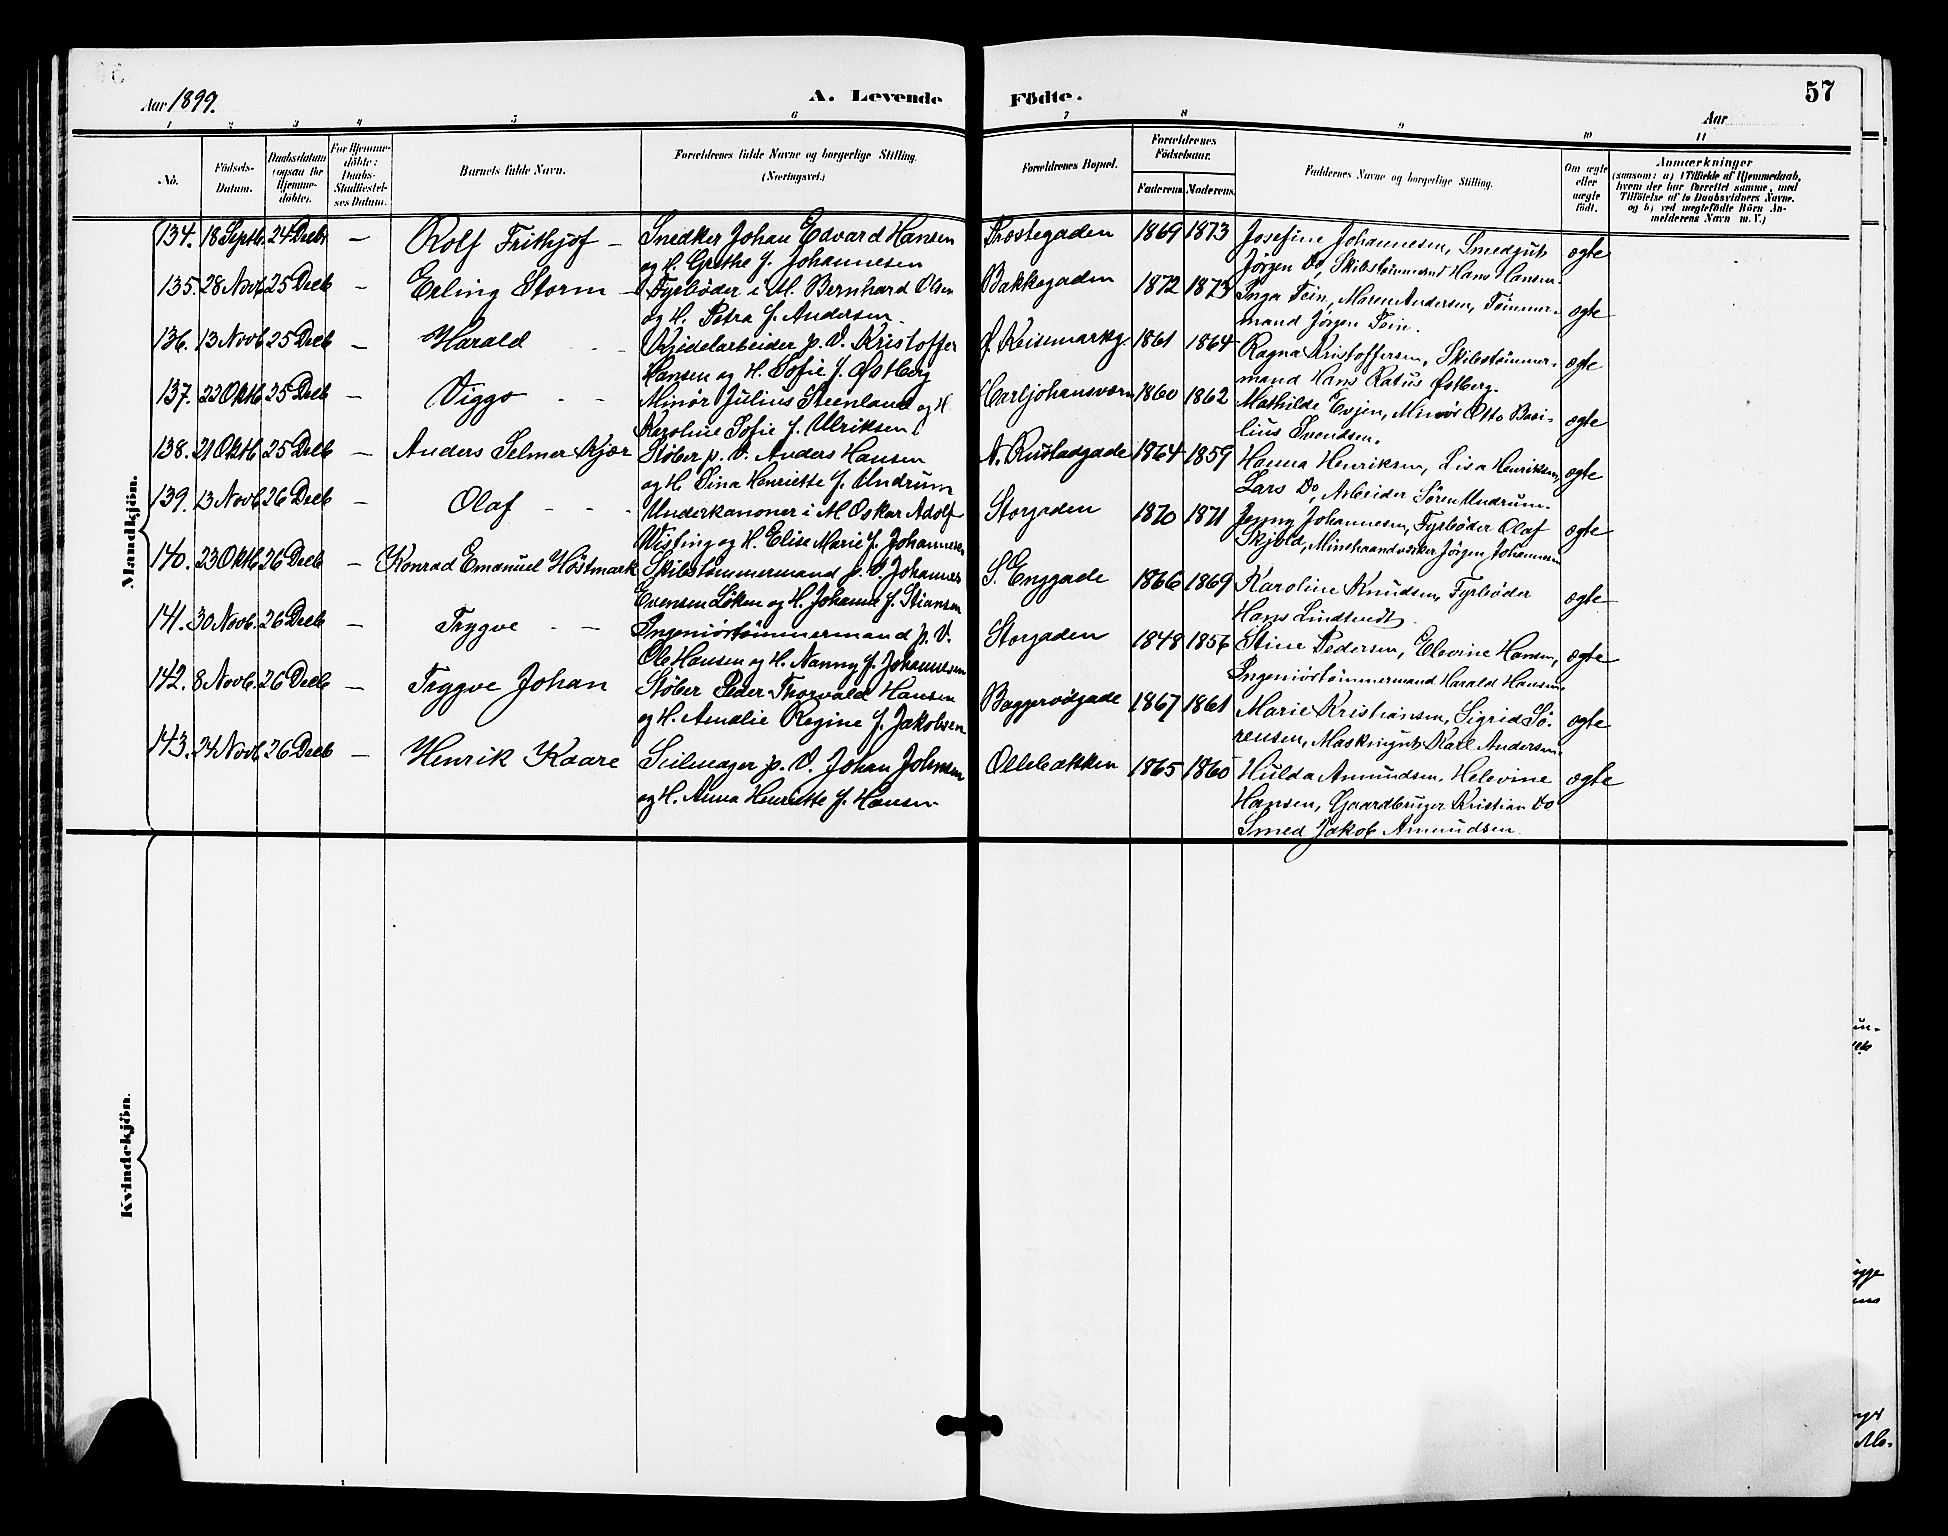 Aar 1899.
A. Levende Födte.
57
Aar
1 2 3 4 5 6 7 8 9 10 11
No.
Födsels-Datum.
Daabsdatum (ogsaa for Hjemme-döbte).
For Hjemme-döbte: Daabs-Stadfæstelses Datum.
Barnets fulde Navn.
Forældrenes fulde Navne og borgerlige Stilling.
(Næringsvei.)
Forældrenes Bopæl.
Forældrenes Födselsaar.
Faderens. Moderens.
Faddernes Navne og borgerlige Stilling.
Om ægte eller uægte födt.
Anmærkninger
(saasom: a) i Tilfælde af Hjemmedaab,
hvem der har forrettet samme, med
Tilföielse af to Daabsvidners Navne.
og b) ved uægtefödte Börn An-
melderens Navn m. V.)
Mandkjön.
134. 18 Septb. 24 Decbr — Rolf Frithjof — Snedker Johan Edvard Hansen
og H. Grethe f. Johannesen
Prostegaden 1869 1873 Josefine Johannesen, Smedgut
Jørgen Do, Skibstømmermd Hans Hansen
ægte
135. 28 Novb 25 Decb — Erling Storm — Fyrbøder i M. Bernhard Olsen
og H. Petra f. Andersen.
Bakkegaden 1872 1873 Inga Tein, Maren Andersen, Tømmer-
mand Jørgen Tein.
ægte
136. 13 Novb 25 Decb — Harald — Kjedelarbeider p. V. Kristoffer
Hansen og H. Sofie f. Østberg
1861 1864 Ragna Kristoffersen, Skibstømmer-
mand Hans Ratus Østberg.
ægte
137. 23 Oktb 25 Decb — Viggo — Minør Julius Steenland og H.
Karoline Sofie f. Ulriksen
Carljohansværn 1860 1862 Mathilde Evjen, Minør Otto Basi-
lius Svendsen.
ægte
138. 21 Oktb 25 Decb — Anders Selmer Kjær Støber p. V. Anders Hansen
og H. Sina Henriette f. Undrum
N. Rustadgade 1864 1859 Hanna Henriksen, Lisa Henriksen,
Lars Do, Arbeider Søren Undrum.
ægte
139. 13 Novb 26 Decb — Olaf — Underkanoner i M. Oskar Adolf
Wisting og H. Elise Marie f. Johannesen
Storgaden 1870 1871 Jenny Johannesen, Fyrbøder Olaf
Skjold, Minehaandværker Jørgen Johannesen
ægte
140. 23 Oktb 26 Decb — Konrad Emanuel Høstmark Skibstømmermand p. V. Johannes
Evensen Løken og H. Johanne f. Stiansen
S. Enggade 1866 1869 Karoline Knudsen, Fyrbøder
Hans Lindtvedt.
ægte
141. 30 Novb. 26 Decb — Trygve — Ingeniørtømmermand p. V.
Ole Hansen og H. Nanny f. Johannesen
Storgaden 1848 1856 Stine Pedersen, Elevine Hansen,
Ingeniørtømmermand Harald Hansen.
ægte
142. 8 Novb. 26 Decb — Trygve Johan Støber Peder Thorvald Hansen
og H. Amalie Regine f. Jakobsen
Baggerødgade 1867 1861 Marie Kristiansen, Sigrid Sø-
rensen, Maskingut Karl Andersen.
ægte
143. 24 Novb 26 Decb — Henrik Kaare Seilmager p. V. Johan Johnsen
og H. Anna Henriette f. Hansen
Ollebakken 1865 1860 Hulda Amundsen, Helevine
Hansen, Gaardbruger Kristian Do
Smed Jakob Amundsen.
ægte
Kvindekjön.